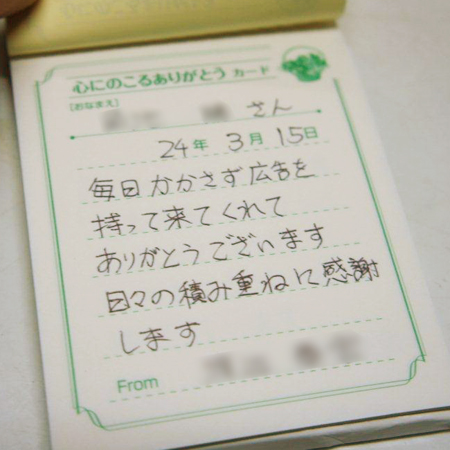 心にのこるありがとう カード
[おなまえ]
さん
24年 3月 15日
毎日かかさず広告を
持って来てくれて
ありがとうございます
日々の積み重ねに感謝
します
From